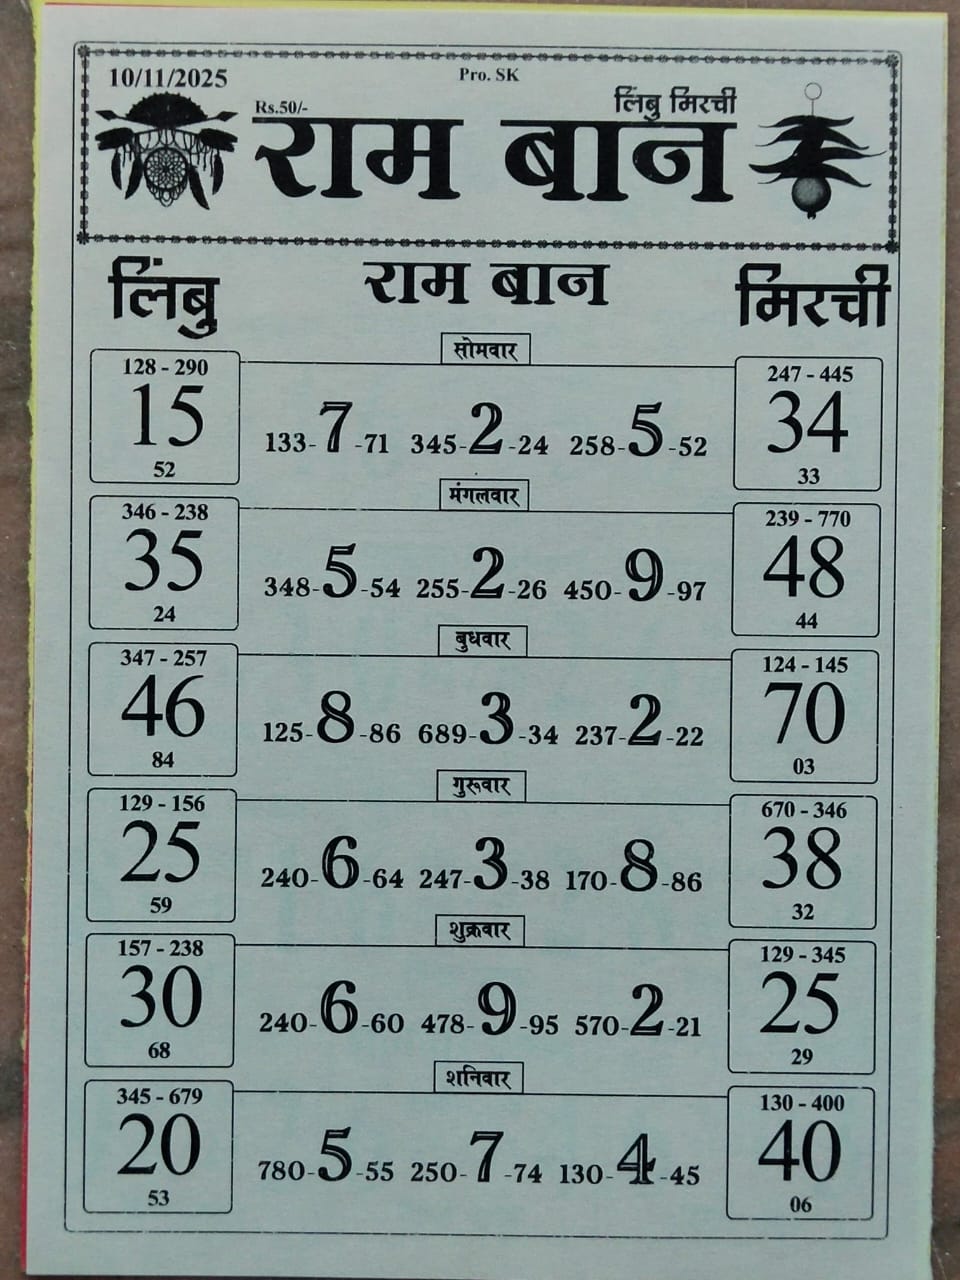 10/11/2025
Pro. SK
Rs.50/-
लिंबु मिरची
राम बान
लिंबु
राम बान
मिरची
सोमवार
128 - 290
15
52
133-7-71 345-2-24 258-5-52
247 - 445
34
33
मंगलवार
346 - 238
35
24
348-5-54 255-2-26 450-9-97
239 - 770
48
44
बुधवार
347 - 257
46
84
125-8-86 689-3-34 237-2-22
124 - 145
70
03
गुरूवार
129 - 156
25
59
240-6-64 247-3-38 170-8-86
670 - 346
38
32
शुक्रवार
157 - 238
30
68
240-6-60 478-9-95 570-2-21
129 - 345
25
29
शनिवार
345 - 679
20
53
780-5-55 250-7-74 130-4-45
130 - 400
40
06